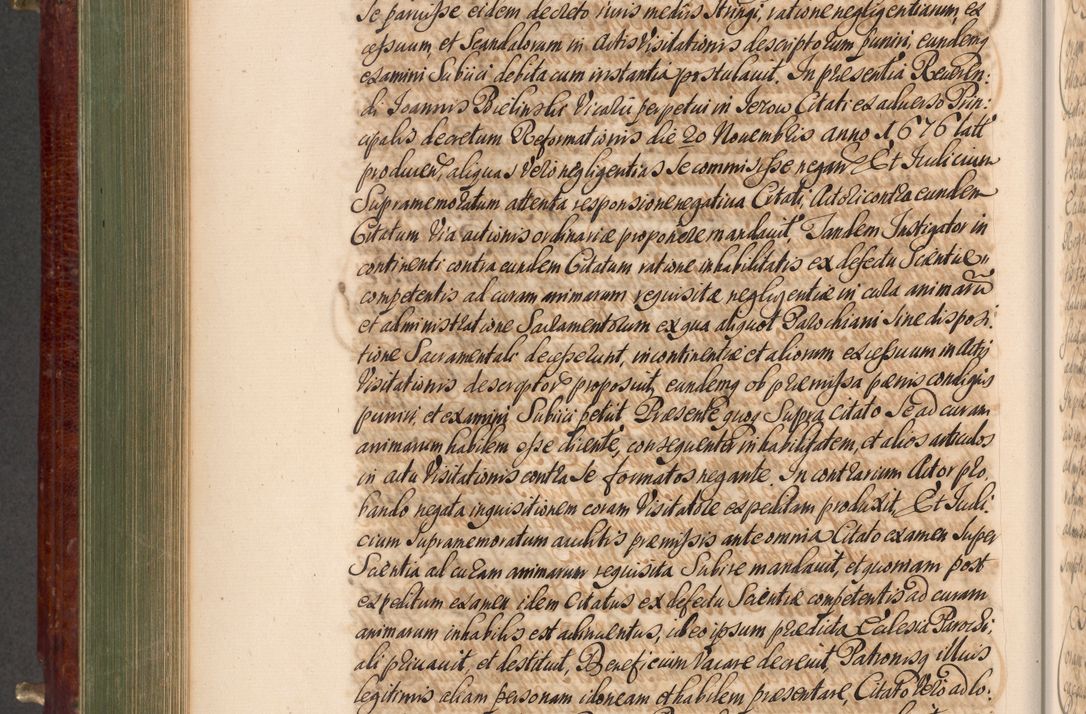 Se paruisse eidem decreto iuris mediis stringi, ratione negligentiarum, ex
cessuum et Scandalorum in Actis Visitationis descriptorum puniri, eundemq
examini Subiici debita cum instantia postulauit. In præsentia Reueren:
di Joannis Bielinski Vicarii perpetui in Jezow Citati ex aduerso Prin:
cipalis decretum Reformationis die 20 Nouembris anno 1676 latt
producen, aliquas Vero negligentias Se commisisse negan Et Iudicium
Supramemoratum attenta responsione negatiua Citati, Actori contra eundem
Citatum Via actionis ordinariæ proponere mandauit. Tandem Instigator in
continenti contra eundem Citatum ratione inhabilitatis ex defectu Scientiæ
competentis ad curam animarum requisitæ negligentiæ in cura animarū
et administratione Sacramentorum ex qua aliquot Parochiani Sine disposi:
tione Sacramentali decesserunt, incontinentiæ et aliorum excessuum in Actis
Visitationis descriptor proposuit, eundemq ob præmissa pœnis condignis
puniri, et examini Subiici petiit. Præsente quoq Supra citato Se ad curam
animarum habilem esse dicente, consequenter inhabilitatem, et alios articulos
in actu Visitationis contra Se formatos negante. In contrarium Actor pro
bando negata inquisitionem coram Visitatore expeditam produxit, Et Iudi:
cium Supramemoratum auditis præmissis ante omnia Citato examen Super
Scientia ad curam animarum requisita Subire mandauit, et quoniam post
expeditum examen idem Citatus ex defectu Scientiæ competentis ad curam
animarum inhabilis est adinuentus, ideo ipsum prædicta Ecclesia Parochi,
ali priuauit, et destituit, Beneficium Vacare decreuit Patronisq illius
legitimis aliam personam idoneam et habilem præsentare, Citato Vero ad lo: